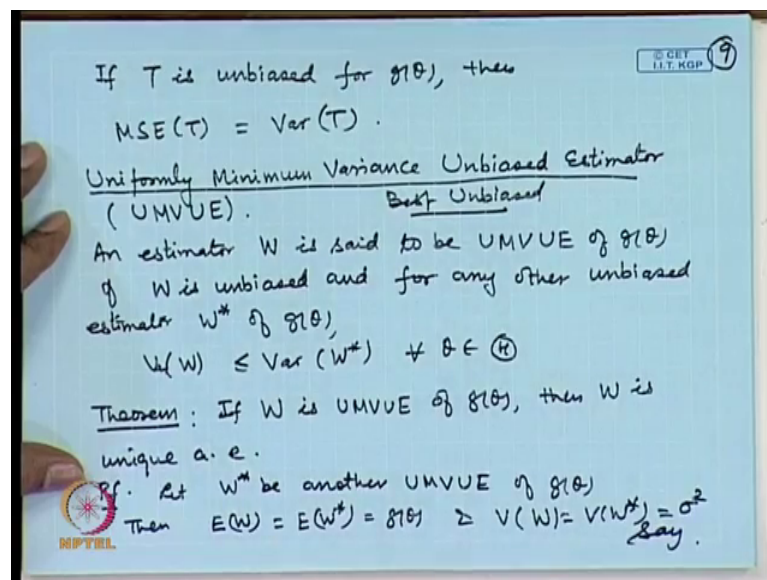 © CET
I.I.T. KGP
9
If T is unbiased for g(θ), then
MSE(T) = Var(T).
Uniformly Minimum Variance Unbiased Estimator
(UMVUE). Best Unbiased
An estimator W is said to be UMVUE of g(θ)
if W is unbiased and for any other unbiased
estimator W* of g(θ),
Var(W) ≤ Var(W*) ∀ θ ∈ Ⓗ
Theorem: If W is UMVUE of g(θ), then W is
unique a. e.
Pf. Let W* be another UMVUE of g(θ)
Then E(W) = E(W*) = g(θ) & V(W) = V(W*) = σ²
say.
NPTEL